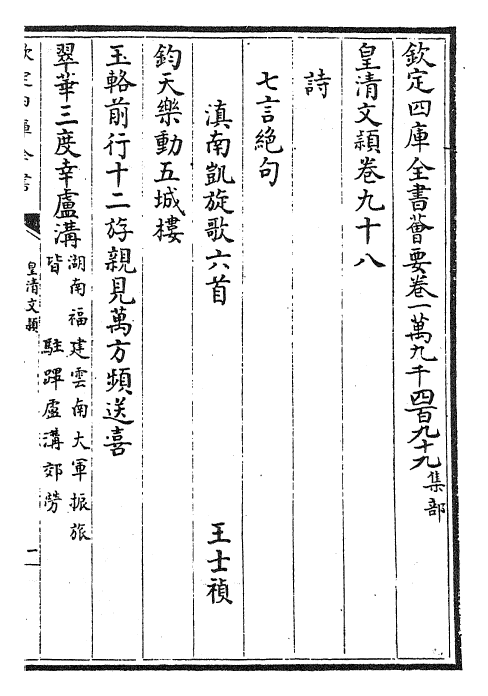 欽定四庫全書薈要卷一萬九千四百九十九集部
皇清文穎卷九十八
詩
七言絶句
滇南凱旋歌六首　王士禎
鈞天樂動五城樓
玉輅前行十二斿親見萬方頻送喜
翠華三度幸盧溝湖南福建雲南大軍振旅皆駐蹕盧溝郊勞
欽定四庫全書
皇清文穎